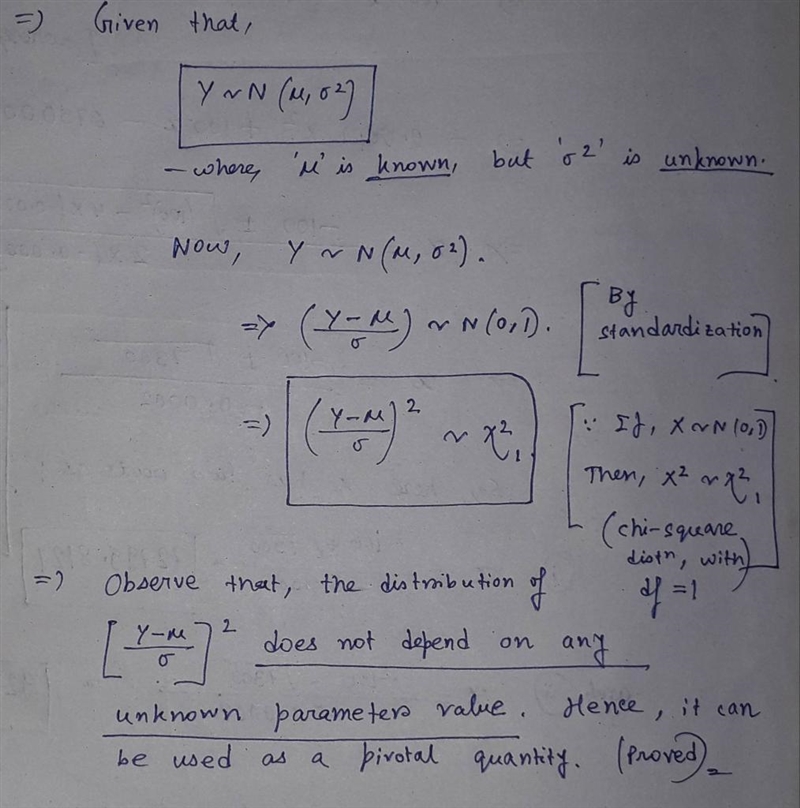 =) Given that,
Y ~ N (μ, σ²)
- where, 'μ' is known, but 'σ²' is unknown.
Now, Y ~ N(μ, σ²).
=> (Y-μ/σ) ~ N(0,1). [By standardization]
=) (Y-μ/σ)² ~ χ²₁ [∵ If, X ~ N(0,1)
Then, X² ~ χ²₁
(chi-square
distn, with)
df = 1
=) Observe that, the distribution of
[Y-μ/σ]² does not depend on any
unknown parameters value. Hence, it can
be used as a pivotal quantity. (Proved)